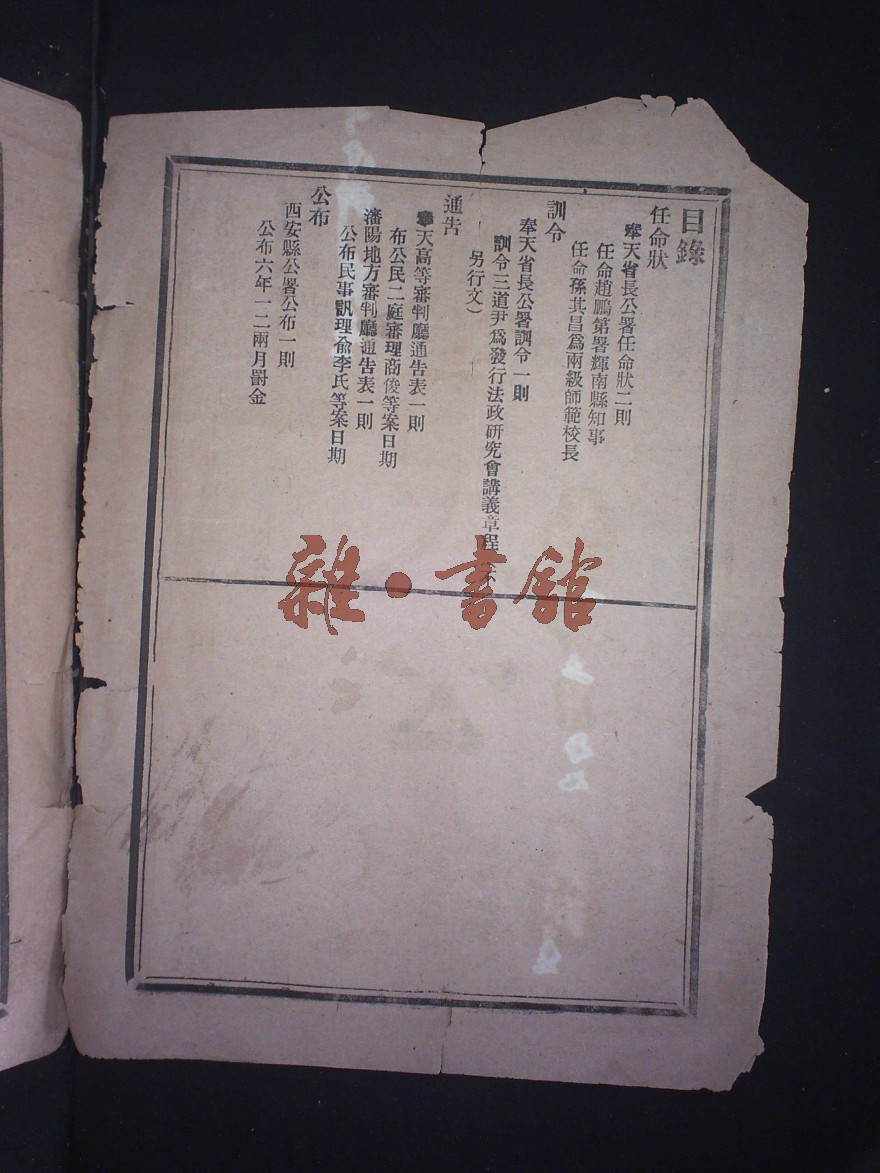 目錄
任命狀
奉天省長公署任命狀二則
任命趙鵬第署輝南縣知事
任命孫其昌爲兩級師範校長
訓令
奉天省長公署訓令一則
訓令三道尹爲發行法政研究會講義章程（不
另行文）
通告
奉天高等審判廳通告表一則
布公民二庭審理商俊等案日期
瀋陽地方審判廳通告表一則
公布民事訊理俞李氏等案日期
公布
西安縣公署公布一則
公布六年一二兩月罰金
雜·書館